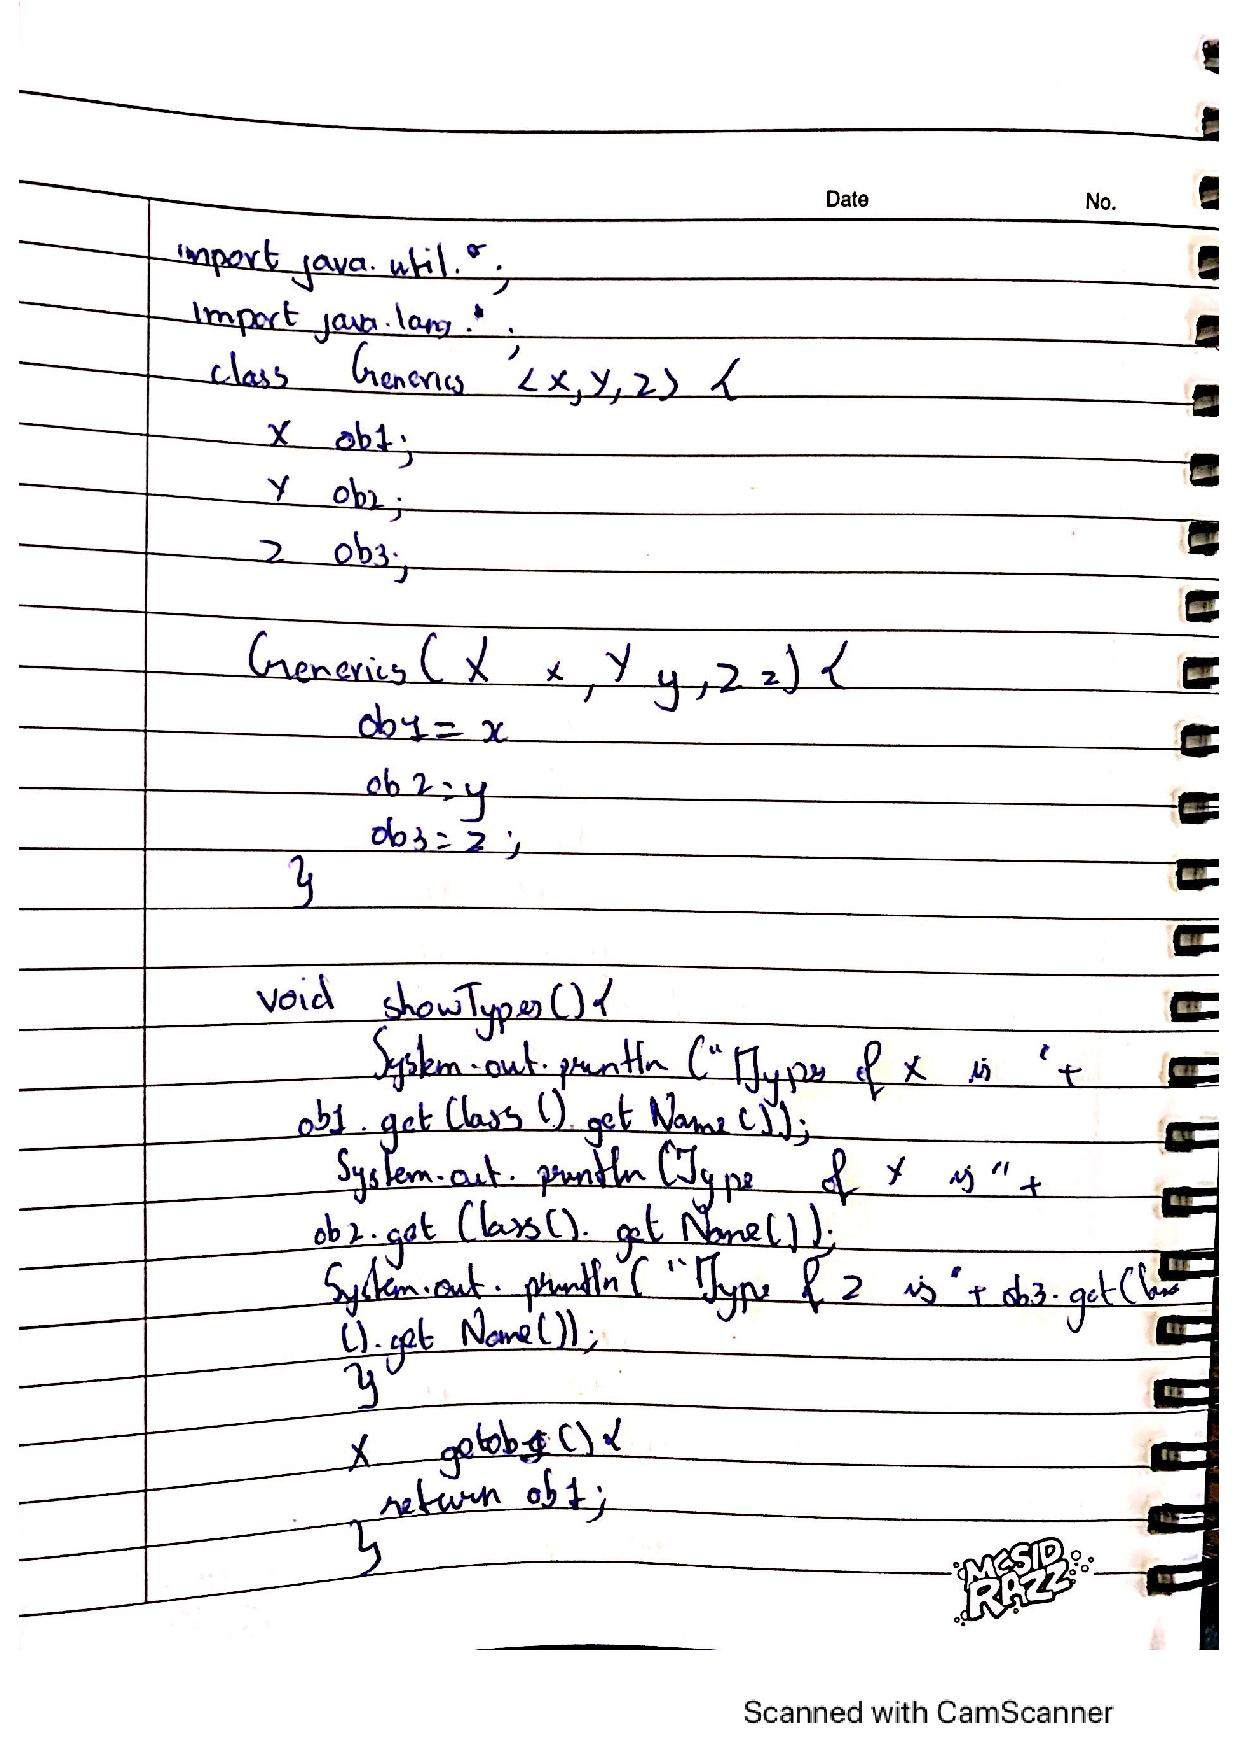 Date No.
import java.util.*;
Import java.lang.*;
class Generics <X,Y,Z> {
X ob1;
Y ob2;
Z ob3;
Generics (X x, Y y, Z z) {
ob1 = x
ob2 = y
ob3 = z;
}
void showTypes() {
System.out.println ("Type of X is " +
ob1.getClass().getName());
System.out.println (Type of Y is " +
ob2.getClass().getName());
System.out.println ("Type of Z is " + ob3.getClass
().getName());
}
X getob1() {
return ob1;
}
MCSID
RAZZ
Scanned with CamScanner